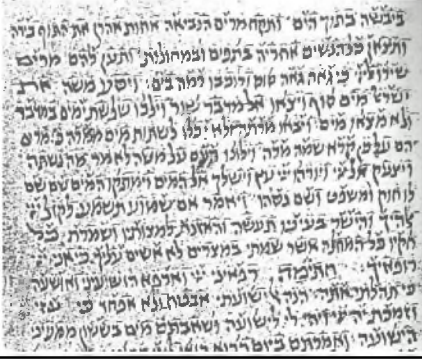 ביבשה בתוך הים ותקח מרים הנביאה אחות אהרן את התוף בידה
ותצאן כל הנשים אחריה בתפים ובמחולות ותען להם מרים
שירו לייי כי גאה גאה סוס ורוכבו רמה בים ויסע משה את
ישר׳ מים סוף ויצאו אל מדבר שור וילכו שלשת ימים במדבר
ולא מצאו מים ויבאו מרתה ולא יכלו לשתות מים ממרה כי מרים
הם על כן קרא שמה מרה וילונו העם על משה לאמר מה נשתה
ויצעק אל ייי ויורהו ייי עץ וישלך אל המים וימתקו המים שם שם
לו חוק ומשפט ושם נסהו ויאמר אם שמוע תשמע לקול ייי
אלהיך והישר בעיניו תעשה והאזנת למצותיו ושמרת כל
חקיו כל המחלה אשר שמתי במצרים לא אשים עליך כי אני ייי
רופאיך חתימה רפאיני ייי וארפא הושיעיני ואושעה
כי תהלתי אתה הנה אל ישועתי אבטח ולא אפחד כי עזי
וזמרת יה ייי ויהי לי לישועה ושאבתם מים בששון ממעיני
הישועה ואמרתם ביום ההוא